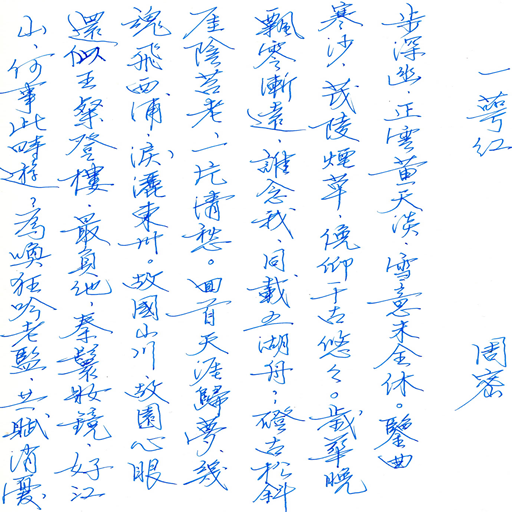 一萼紅　周密
步深幽、正雲黃天淡、雪意未全休。鑒曲
寒沙、茂陵煙草、俛仰千古悠々。歲華晚
飄零漸遠、誰念我、同載五湖舟？磴古松斜
厓陰苔老、一片清愁。回首天涯歸夢、幾
魂飛西浦、淚灑東州。故國山川、故園心眼
還似王粲登樓、最負他、秦鬟妝鏡、好江
山、何事此時遊？為喚狂吟老監、共賦消憂